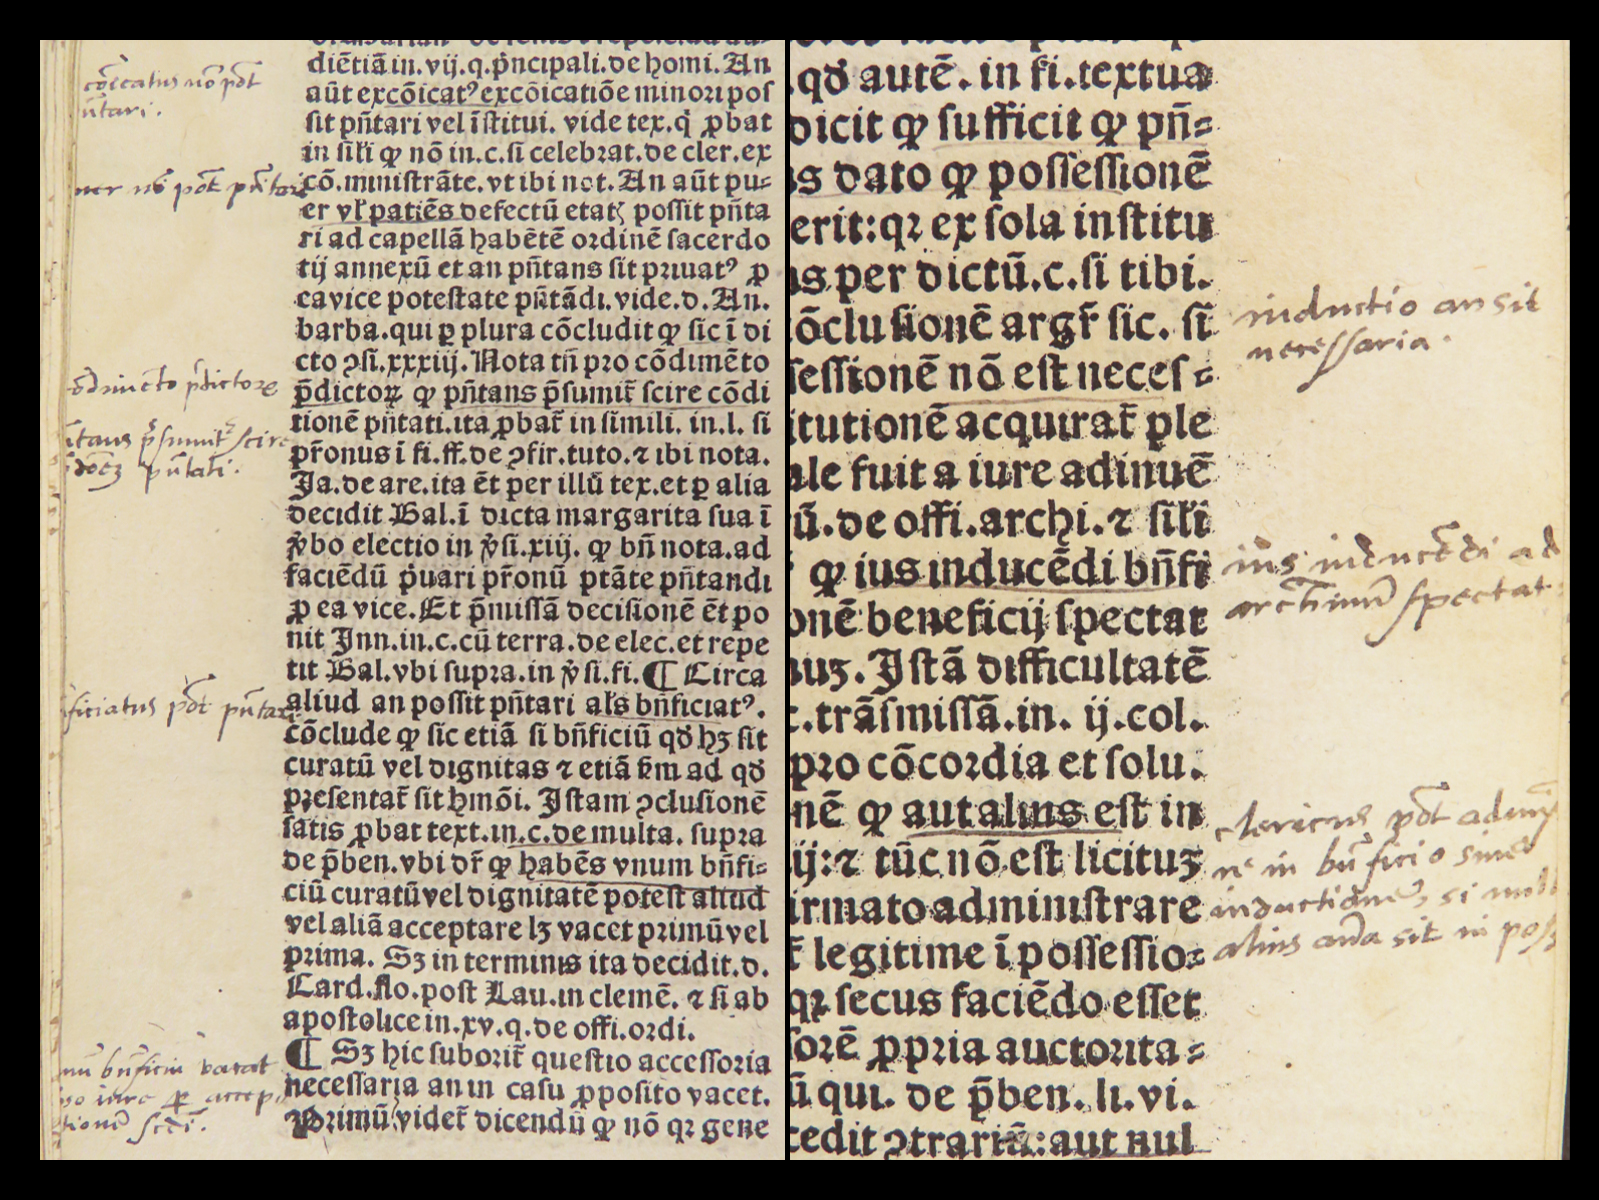 diētiā in. vij. q. p̄ncipali. de homi. An
aūt excōicatꝰ excōicatiōe minori pos
sit pn̄tari vel īstitui. vide tex. q̇ ꝓbat
in sil̄i ꝙ nō in. c. si celebrat. de cler. ex
cō. ministrāte. vt ibi not. An aūt pu⸗
er vl̄ patiēs defectū etatꝭ possit pn̄ta
ri ad capellā habētē ordinē sacerdo
tij annexū et an pn̄tans sit priuatꝰ ꝓ
ea vice potestate pn̄tādi. vide. d. An.
barba. qui ꝑ plura cōcludit ꝙ sic ī di
cto ꝯsi. xxxiij. Nota tn̄ pro cōdimēto
p̄dictoꝝ ꝙ pn̄tans p̄sumit̄ scire cōdi
tionē pn̄tati. ita ꝓbat̄ in simili. in. l. si
pr̄onus ī fi. ff. de ꝯfir. tuto. ⁊ ibi nota.
Ja. de are. ita ēt per illū tex. et ꝑ alia
decidit Bal. ī dicta margarita sua ī
v̇bo electio in v̇si. xiij. ꝙ bn̄ nota. ad
faciēdū ṗuari pr̄onū ptāte pn̄tandi
ꝓ ea vice. Et p̄missā decisionē ēt po
nit Inn. in. c. cū terra. de elec. et repe
tit Bal. vbi supra. in v̇si. fi. ¶ Circa
aliud an possit pn̄tari al̄s bn̄ficiatꝰ.
cōclude ꝙ sic etiā si bn̄ficiū qd̄ hꝫ sit
curatū vel dignitas ⁊ etiā s̄m ad qd̄
presentat̄ sit hmōi. Istam ꝯclusionē
satis ꝓbat text. in. c. de multa. supra
de p̄ben. vbi dr̄ ꝙ habēs vnum bn̄fi⸗
ciū curatū vel dignitatē potest aliud
vel aliā acceptare lꝫ vacet primū vel
prima. Sꝫ in terminis ita decidit. d.
Card. flo. post Lau. in clemē. ⁊ si ab
apostolice in. xv. q. de offi. ordi.
¶ Sꝫ hic suborit̄ questio accessoria
necessaria an in casu ꝓposito vacet.
Primū videt̄ dicendū ꝙ nō qꝛ gene
nō pōt
ner nō pōt
p̄dictorꝫ
p̄sumit scire
pn̄tati.
ficiatus pōt pn̄tari
bn̄ficiū vacat
iure ꝑ accep
tionē scdi.
.qd̄ autē. in fi. textua
dicit ꝙ sufficit ꝙ pn̄⸗
s dato ꝙ possessionē
erit: qꝛ ex sola institu
as per dictū. c. si tibi.
ōclusionē argr̄ sic. si
sessionē nō est neces⸗
itutionē acquirat̄ ple
ale fuit a iure adinuē
ū. de offi. archi. ⁊ sil̄i
ꝙ ius inducēdi bn̄fi
onē beneficij spectat
nuꝫ. Istā difficultatē
c. trāsmissā. in. ij. col.
pro cōcordia et solu.
nē ꝙ aut alius est in
ij: ⁊ tūc nō est licituꝫ
irmato administrare
t̄ legitime ī possessio⸗
qꝛ secus faciēdo esset
sorē ꝓpria auctorita⸗
ū qui. de p̄ben. li. vi.
cedit ꝯtrariū: aut nul
inductio an sit
necessaria.
ius inducēdi ad
spectat
clericus pōt
in bn̄ficio sine
inductione, si
alius sit in